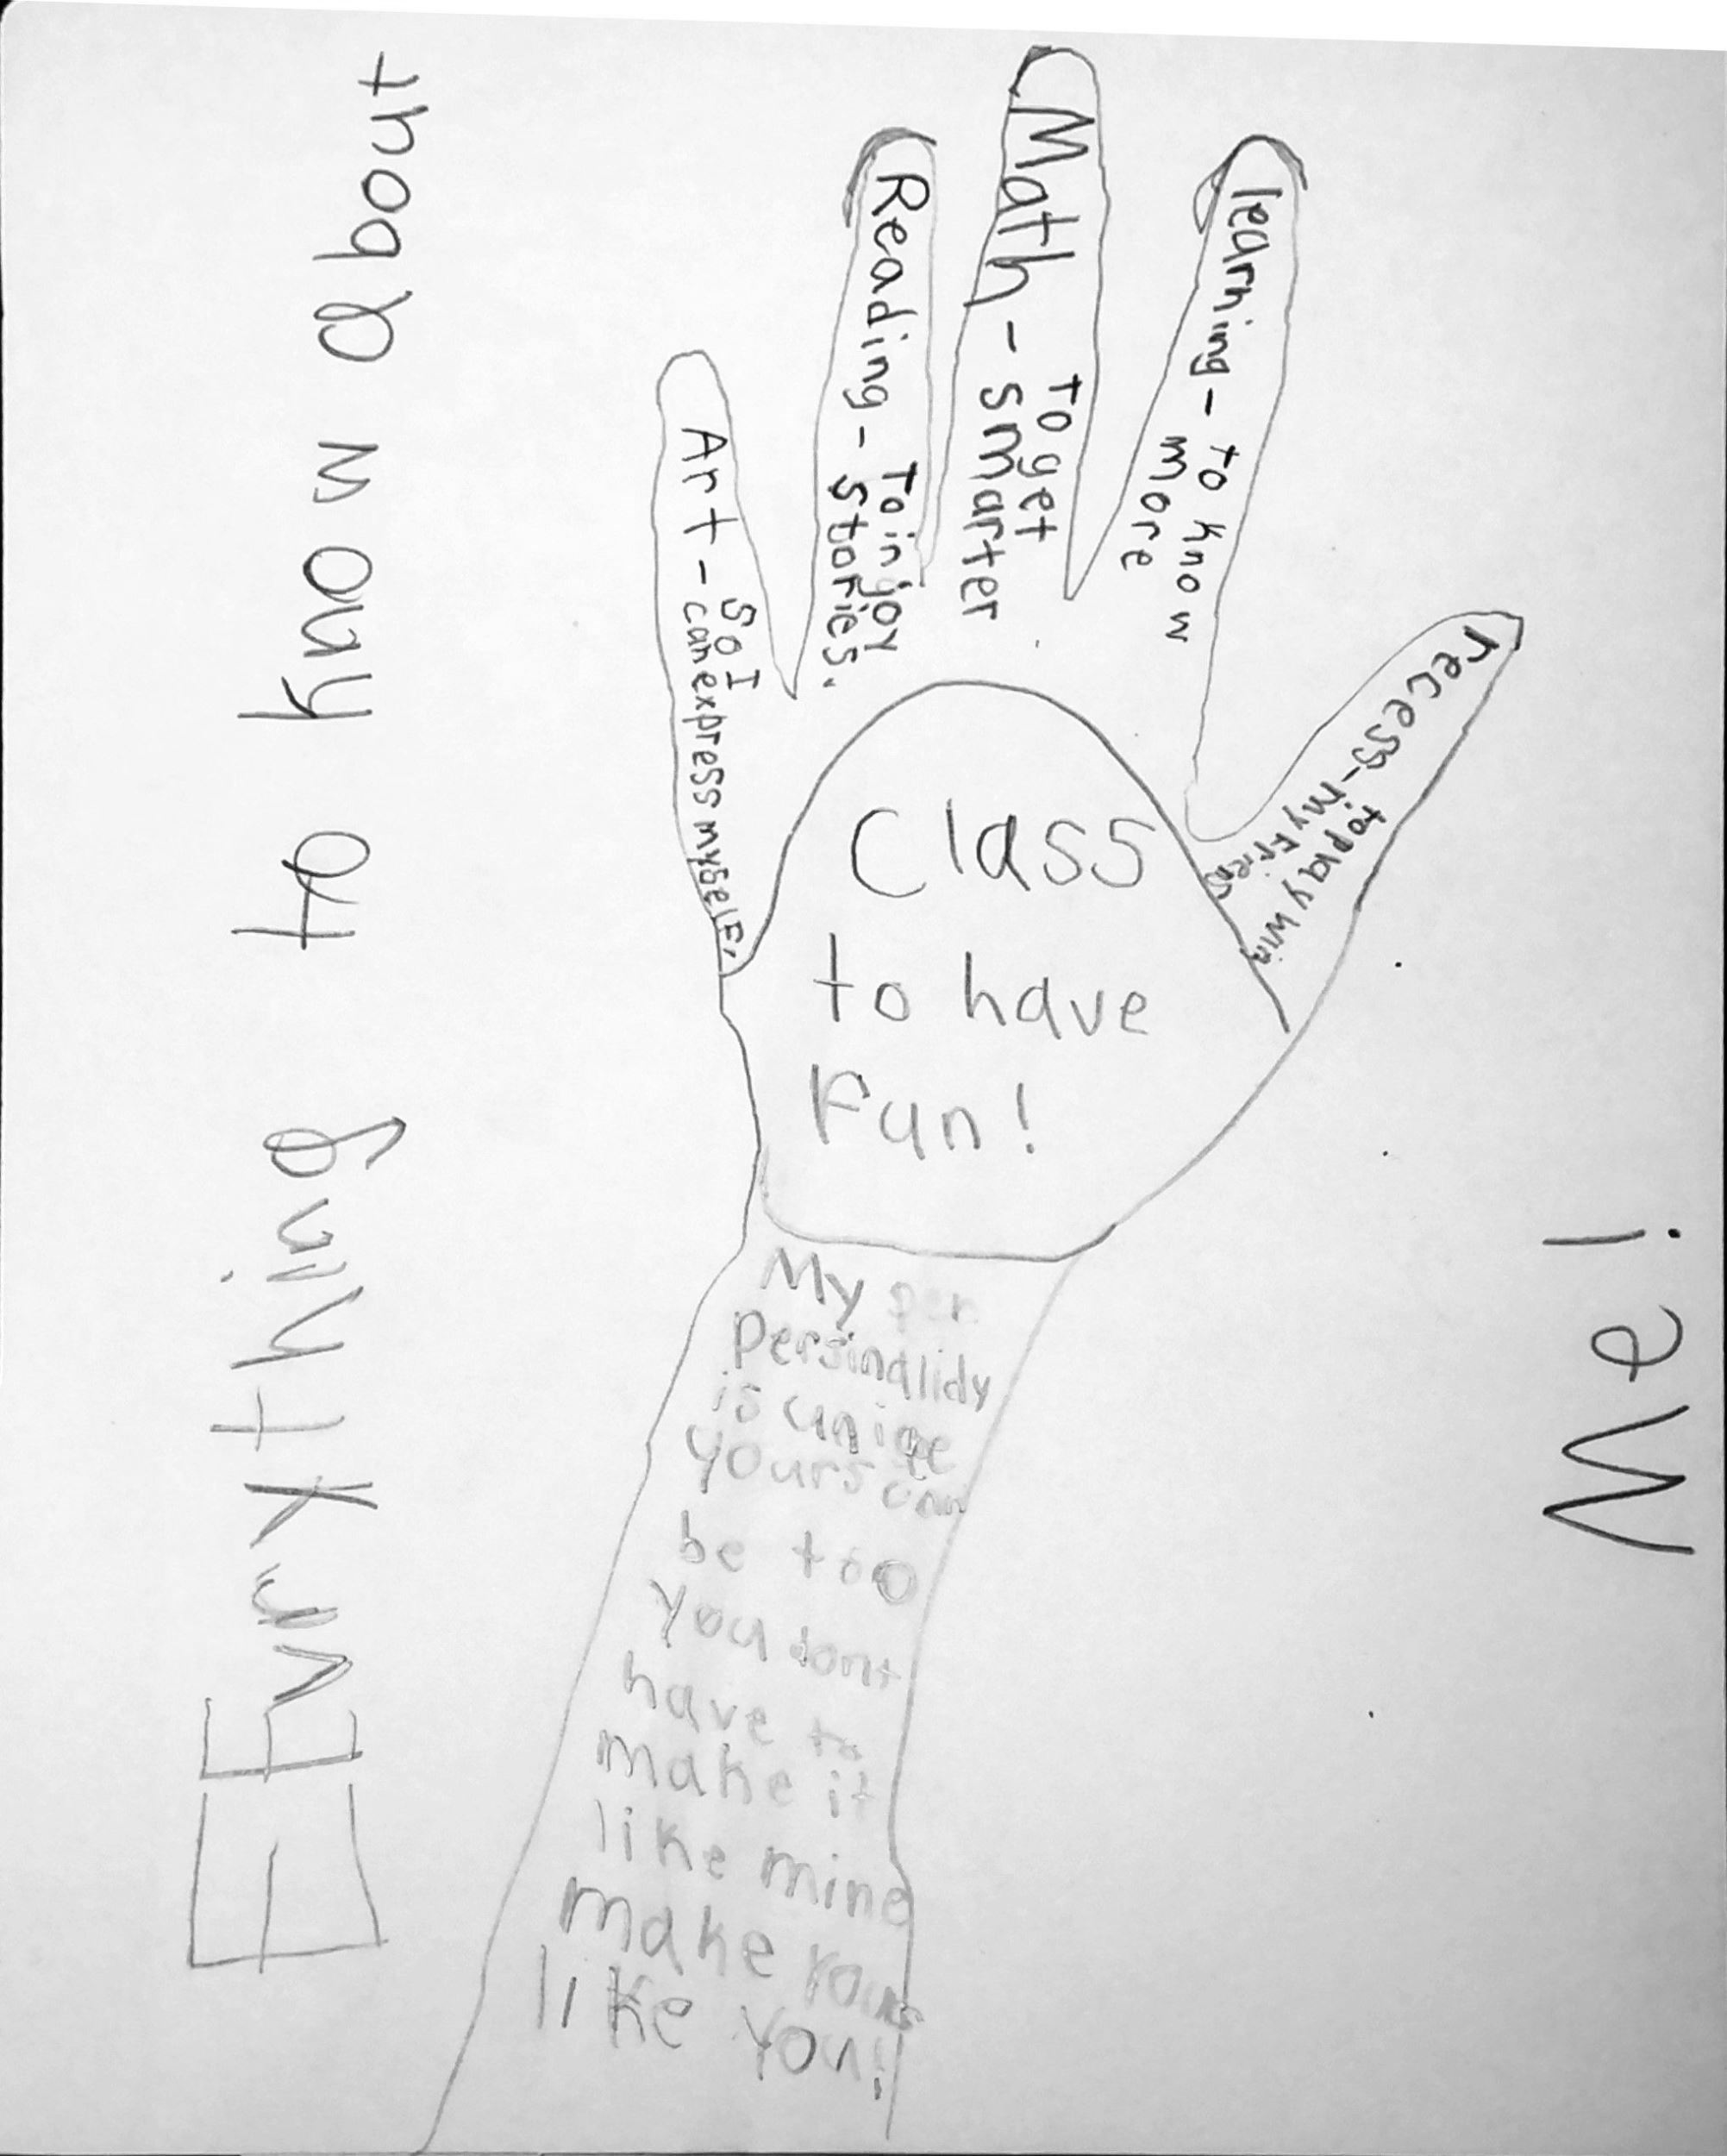 EEvrything to know about
Me!
Art - So I
can express myself.
Reading - To injoy
stories.
Math - To get
smarter
learning - to know
more
recess - to play with
my friend
Class
to have
Fun!
My per
Persinalidy
is uniqe
yours can
be too
You dont
have to
make it
like mine
make yours
like you!